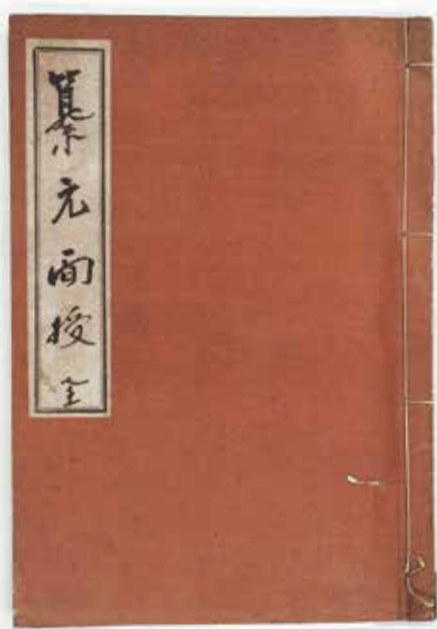 纂元面授 全